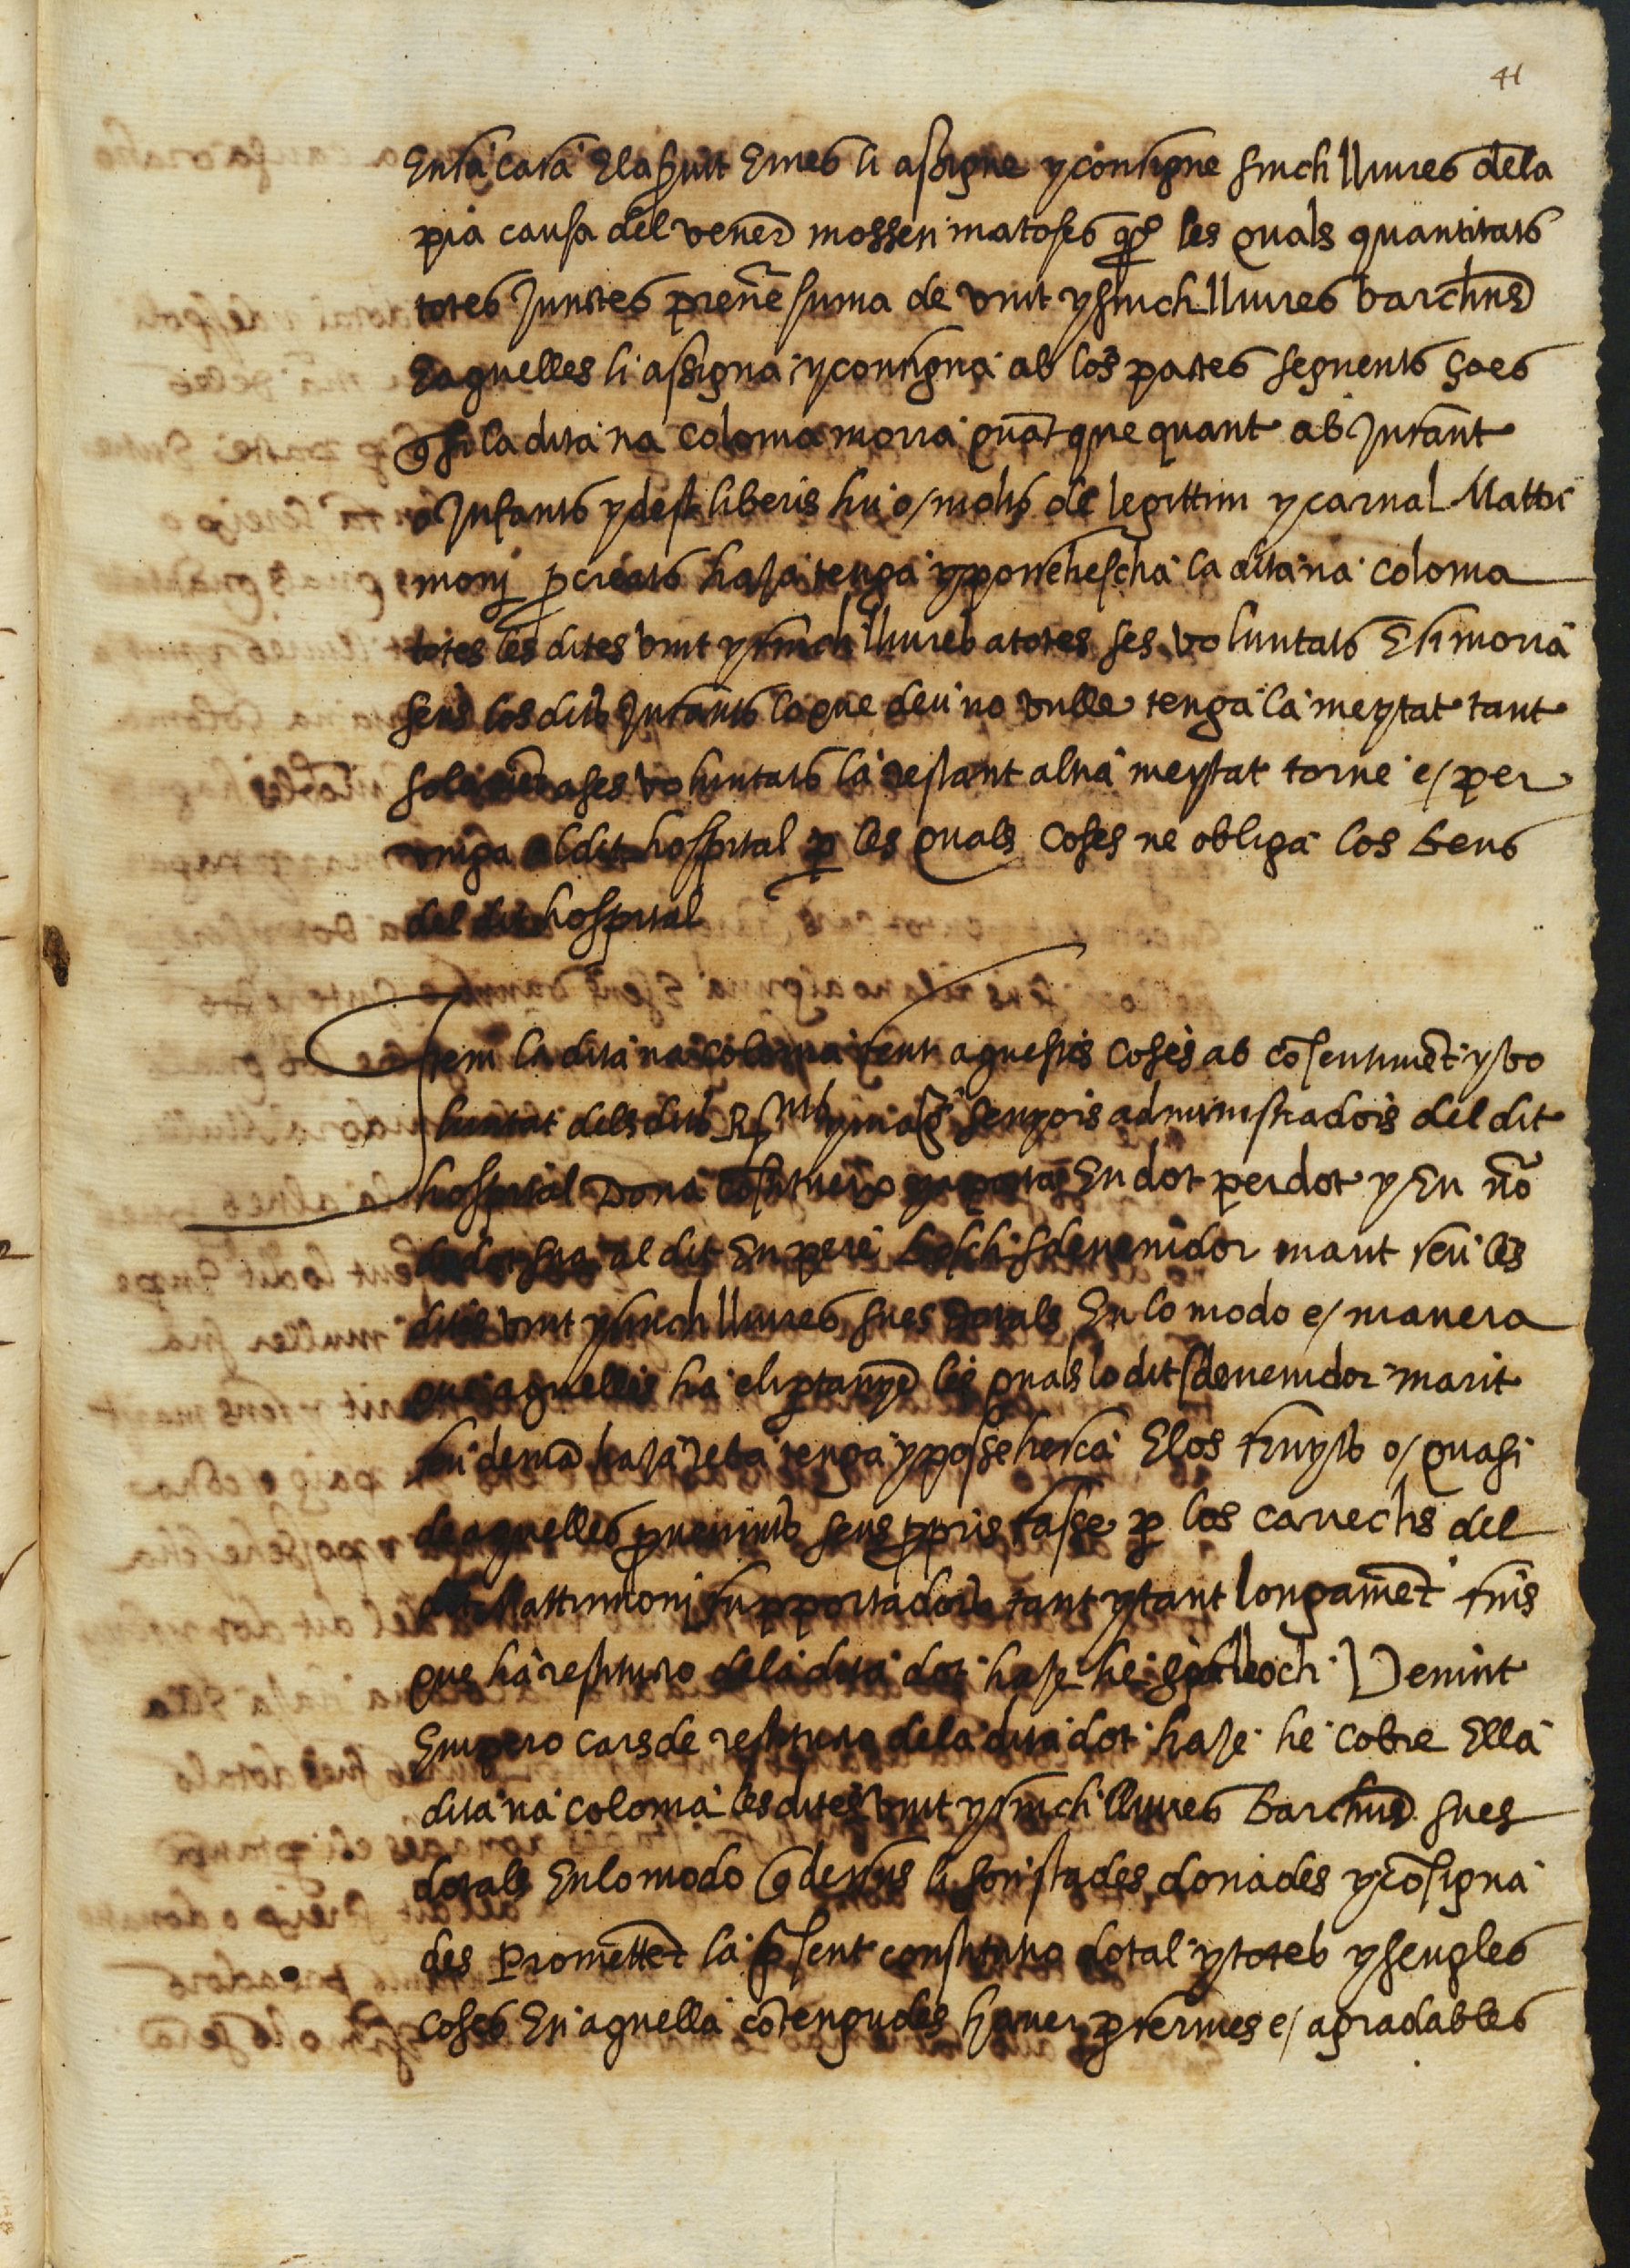 41
En sa casa E la servit E mes li assigne y consigne sinch lliures de la
pia causa del vener mossen matoses qº les quals quantitats
totes Junctes prenē suma de vint y sinch lliures barchns
E aquelles li assigna y consigna ab los pactes seguents ço es
q si la dita na coloma morra quāt que quant ab Infant
o Infants ydest liberis hu o/ molts de legittim y carnal Mattri
monj pcreats haja tenga y possehescha la dita na coloma
totes les dites vint y sinch lliures a totes ses voluntats E si morra
sens los dits Infants lo que deu no vulle tenga la meytat tant
solamēt a ses voluntats la restant altra meytat torne e/ per
vinga al dit hospital p les quals coses ne obliga los bens
del dit hospital
Item la dita na coloma fent aquestes coses ab cōsentimēt y vo
luntat dels dits Rnts y magchs senyors administradors del dit
hospital Dona cōstitueix y aporta En dot per dot y En nō
de dot sua al dit En pere bosch sdevenidor marit seu les
dites vint y sinch lliures sues dotals En lo modo e/ manera
que aquelles ha e li ptanyē les quals lo dit sdevenidor marit
seu demā haja reba tenga y possehesca E los fruyts o/ quasi
de aquelles pvenints seus ppris fasse p los carrechs del
dit Mattrimonj supportadors tant y tant longamēt fins
que ha restitutio de la dita dot haje he sie lloch Venint
Empero cars de restitutio de la dita dot haje he cobre Ella
dita na coloma les dites vint y sinch lliures barchns sues
dotals En lo modo q dessus li son stades donades y cōsigna
des Promettēt la pñt sent constitutio dotal y totes y sengles
coses En aquella cōtengudes haver p fermes e/ agradables